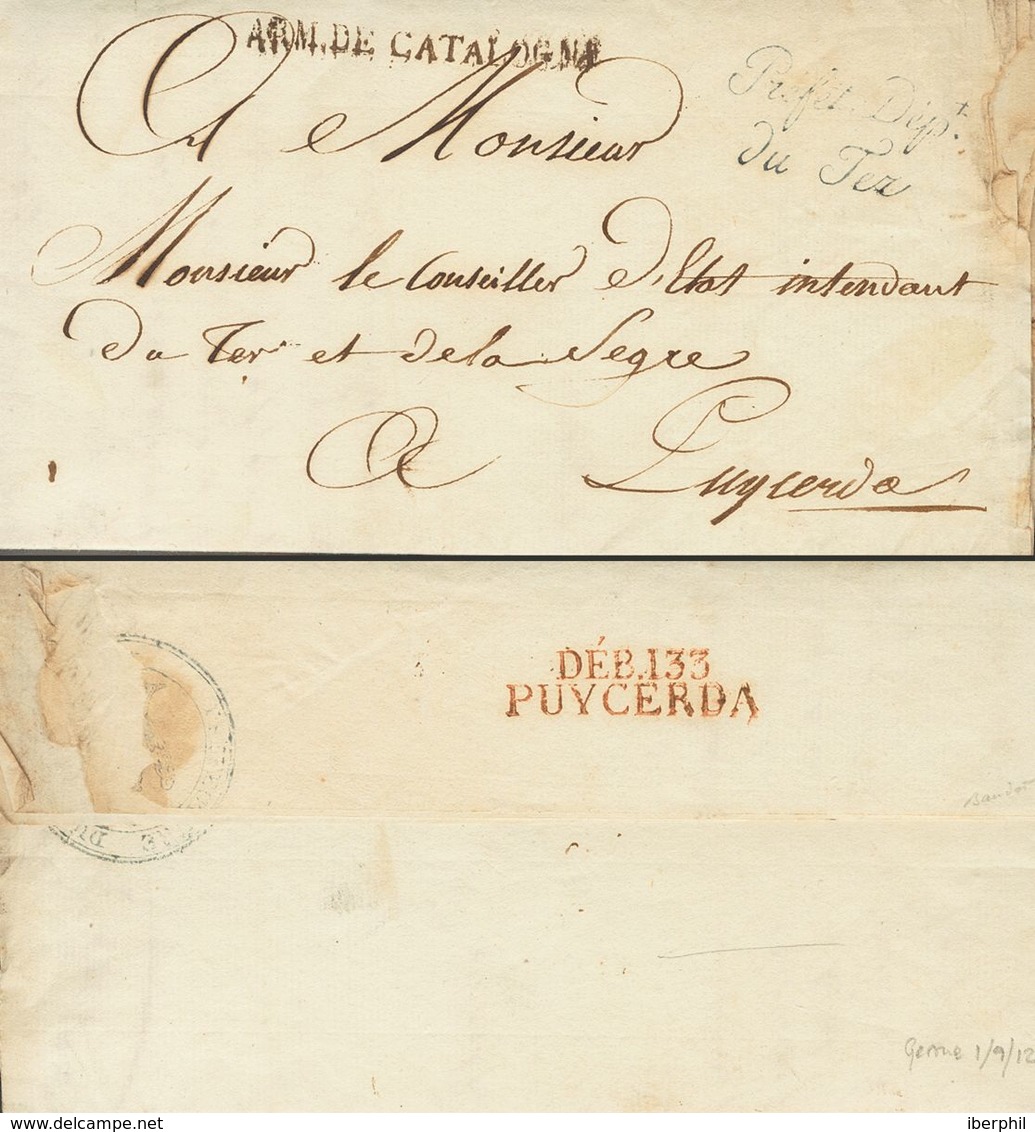 ARM. DE CATALOGNE
Préfet Dépt.
du Ter
A Monsieur
Monsieur le Conseiller d'Etat intendant
du Ter et de la Segre
A Puycerda
DÉB. 133
PUYCERDA
DU
Baudot
Gerone 1/9/12
delcampe.net
iberphil